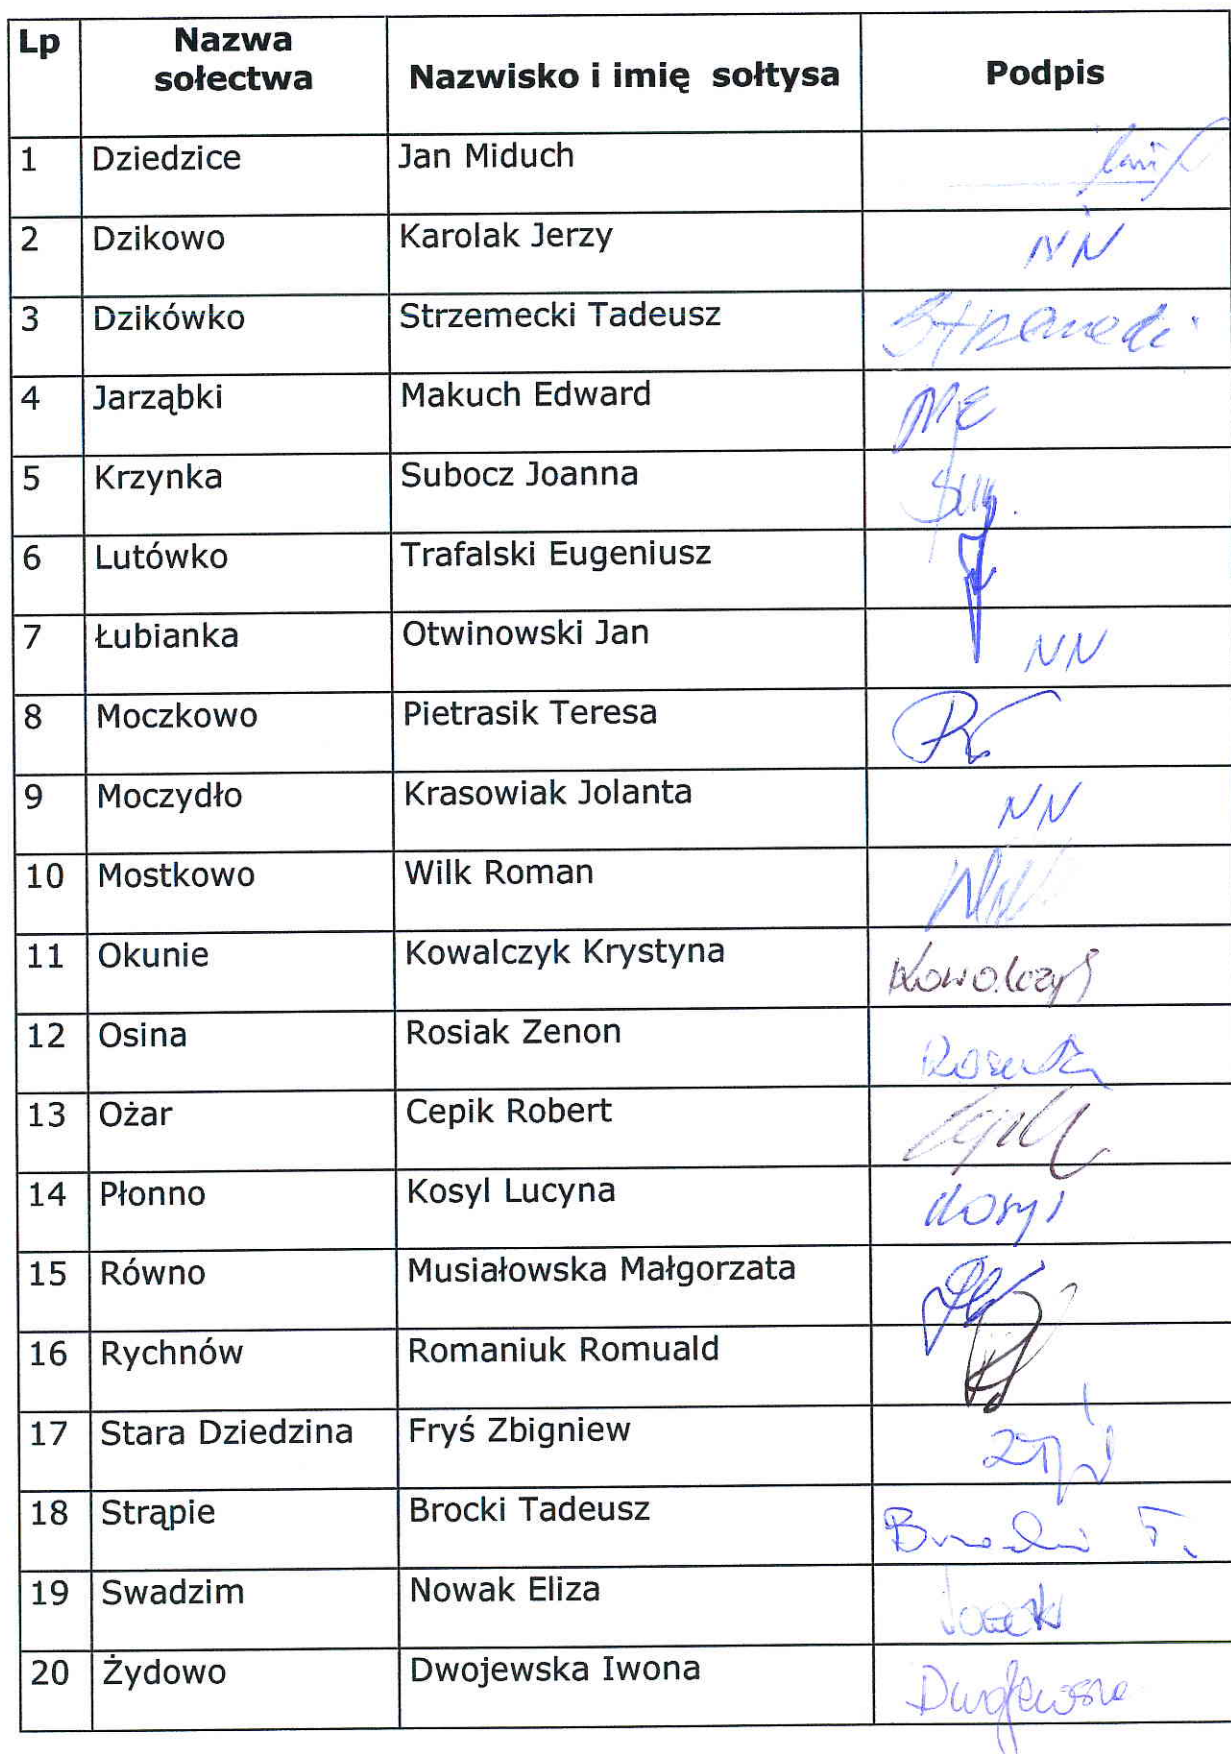 Lp Nazwa sołectwa Nazwisko i imię sołtysa Podpis
1 Dziedzice Jan Miduch
2 Dzikowo Karolak Jerzy NN
3 Dzikówko Strzemecki Tadeusz
4 Jarząbki Makuch Edward ME
5 Krzynka Subocz Joanna
6 Lutówko Trafalski Eugeniusz
7 Łubianka Otwinowski Jan NN
8 Moczkowo Pietrasik Teresa
9 Moczydło Krasowiak Jolanta NN
10 Mostkowo Wilk Roman
11 Okunie Kowalczyk Krystyna Kowalczyk
12 Osina Rosiak Zenon
13 Ożar Cepik Robert
14 Płonno Kosyl Lucyna Kosyl
15 Równo Musiałowska Małgorzata
16 Rychnów Romaniuk Romuald
17 Stara Dziedzina Fryś Zbigniew
18 Strąpie Brocki Tadeusz Brocki T.
19 Swadzim Nowak Eliza
20 Żydowo Dwojewska Iwona Dwojewska